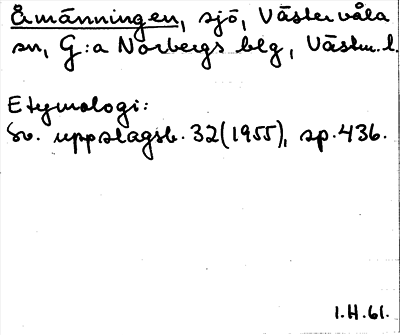 Åmänningen, sjö, Västervåla
sn, G:a Norbergs blg, Västm.l.
Etymologi:
Sv. uppslagsb. 32(1955), sp.436.
I.H.61.